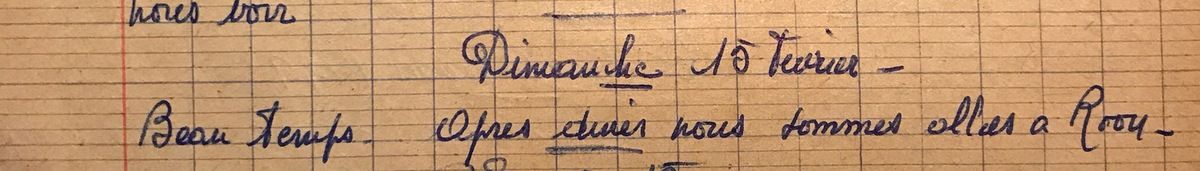 nous voir
Dimanche 15 Fevrier -
Beau temps. Apres diner nous sommes allées a